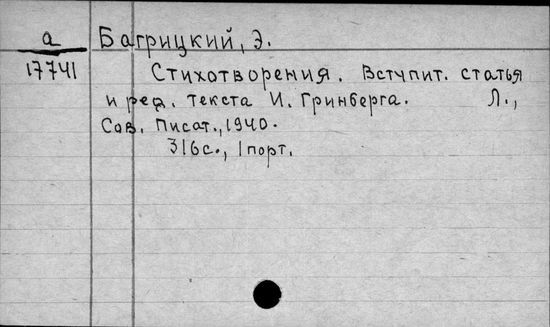 а Багрицкий, Э.
17741 Стихотворения. Вступит. статья
и ред. текста И. Гринберга. Л.,
Сов. Писат., 1940.
316с., 1 порт.